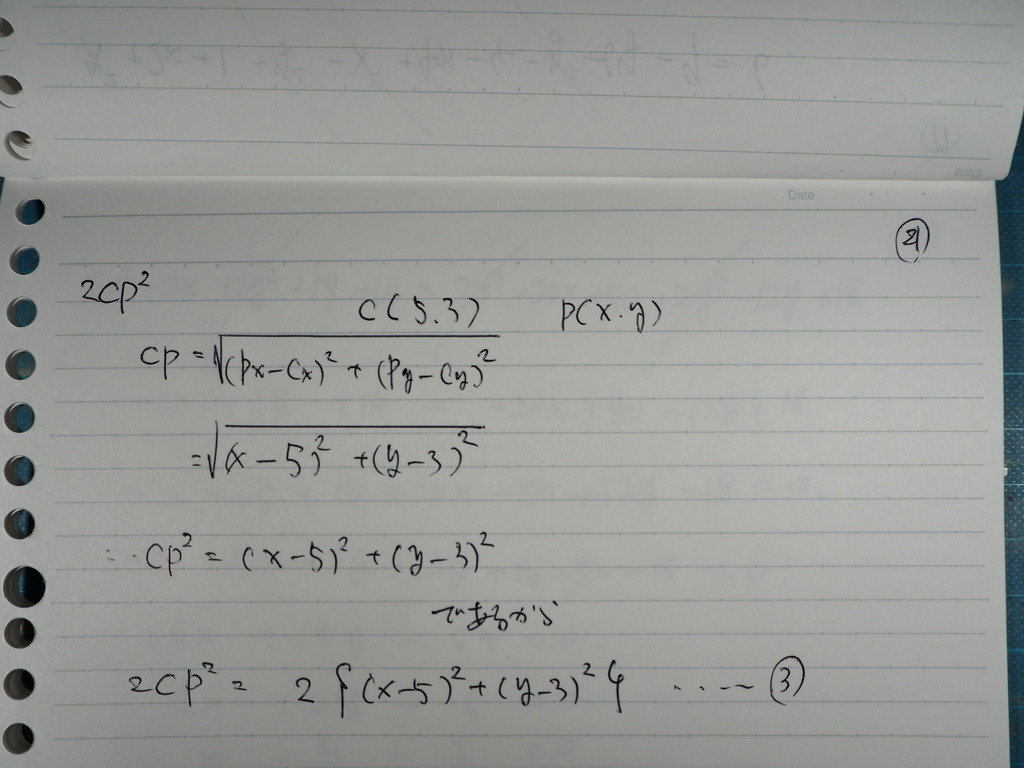 Date
㉑
2CP²
C(5.3) P(x.y)
CP = √(Px-Cx)² + (Py-Cy)²
= √(x-5)² + (y-3)²
∴ CP² = (x-5)² + (y-3)²
であるから
2CP² = 2{(x-5)² + (y-3)²} ..... ③